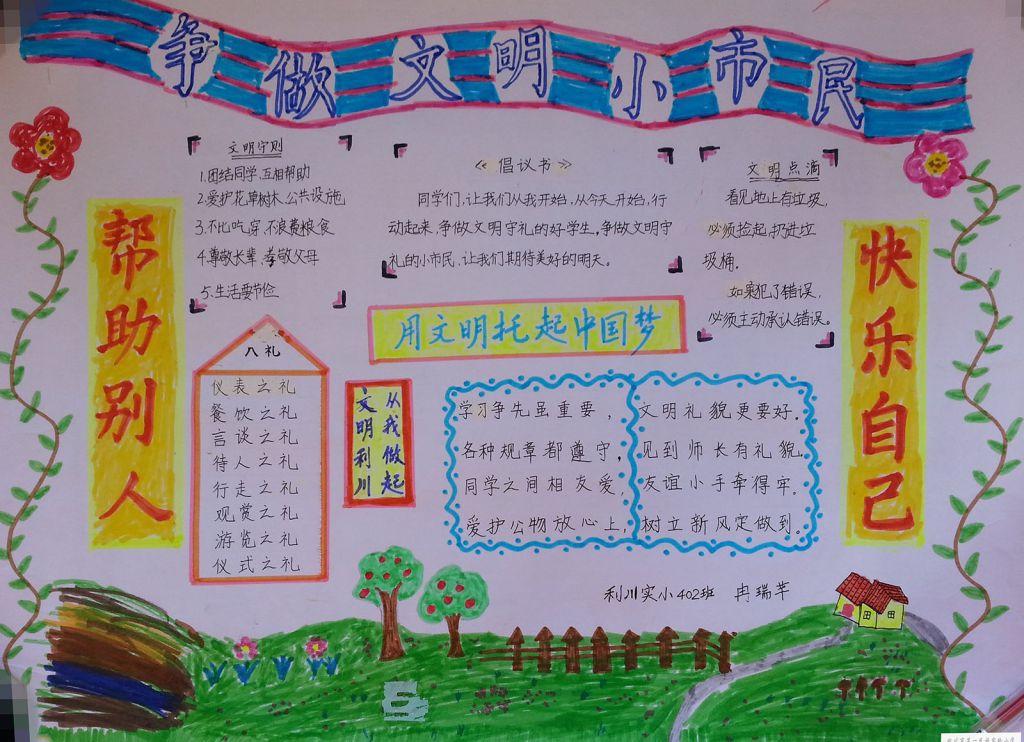 争做文明小市民
帮助别人
文明守则
1.团结同学,互相帮助
2.爱护花草树木,公共设施
3.不比吃,穿,不浪费粮食
4.尊敬长辈、孝敬父母
5.生活要节俭
《倡议书》
同学们,让我们从我开始,从今天开始,行
动起来,争做文明守礼的好学生,争做文明守
礼的小市民、让我们期待美好的明天。
文明点滴
看见地上有垃圾,
必须捡起,扔进垃
圾桶。
如果犯了错误,
必须主动承认错误。
快乐自己
用文明托起中国梦
八礼
仪表之礼
餐饮之礼
言谈之礼
待人之礼
行走之礼
观赏之礼
游览之礼
仪式之礼
从我做起
文明利川
学习争先虽重要,文明礼貌更要好.
各种规章都遵守,见到师长有礼貌.
同学之间相友爱,友谊小手牵得牢.
爱护公物放心上,树立新风定做到.
利川实小402班 冉瑞苹